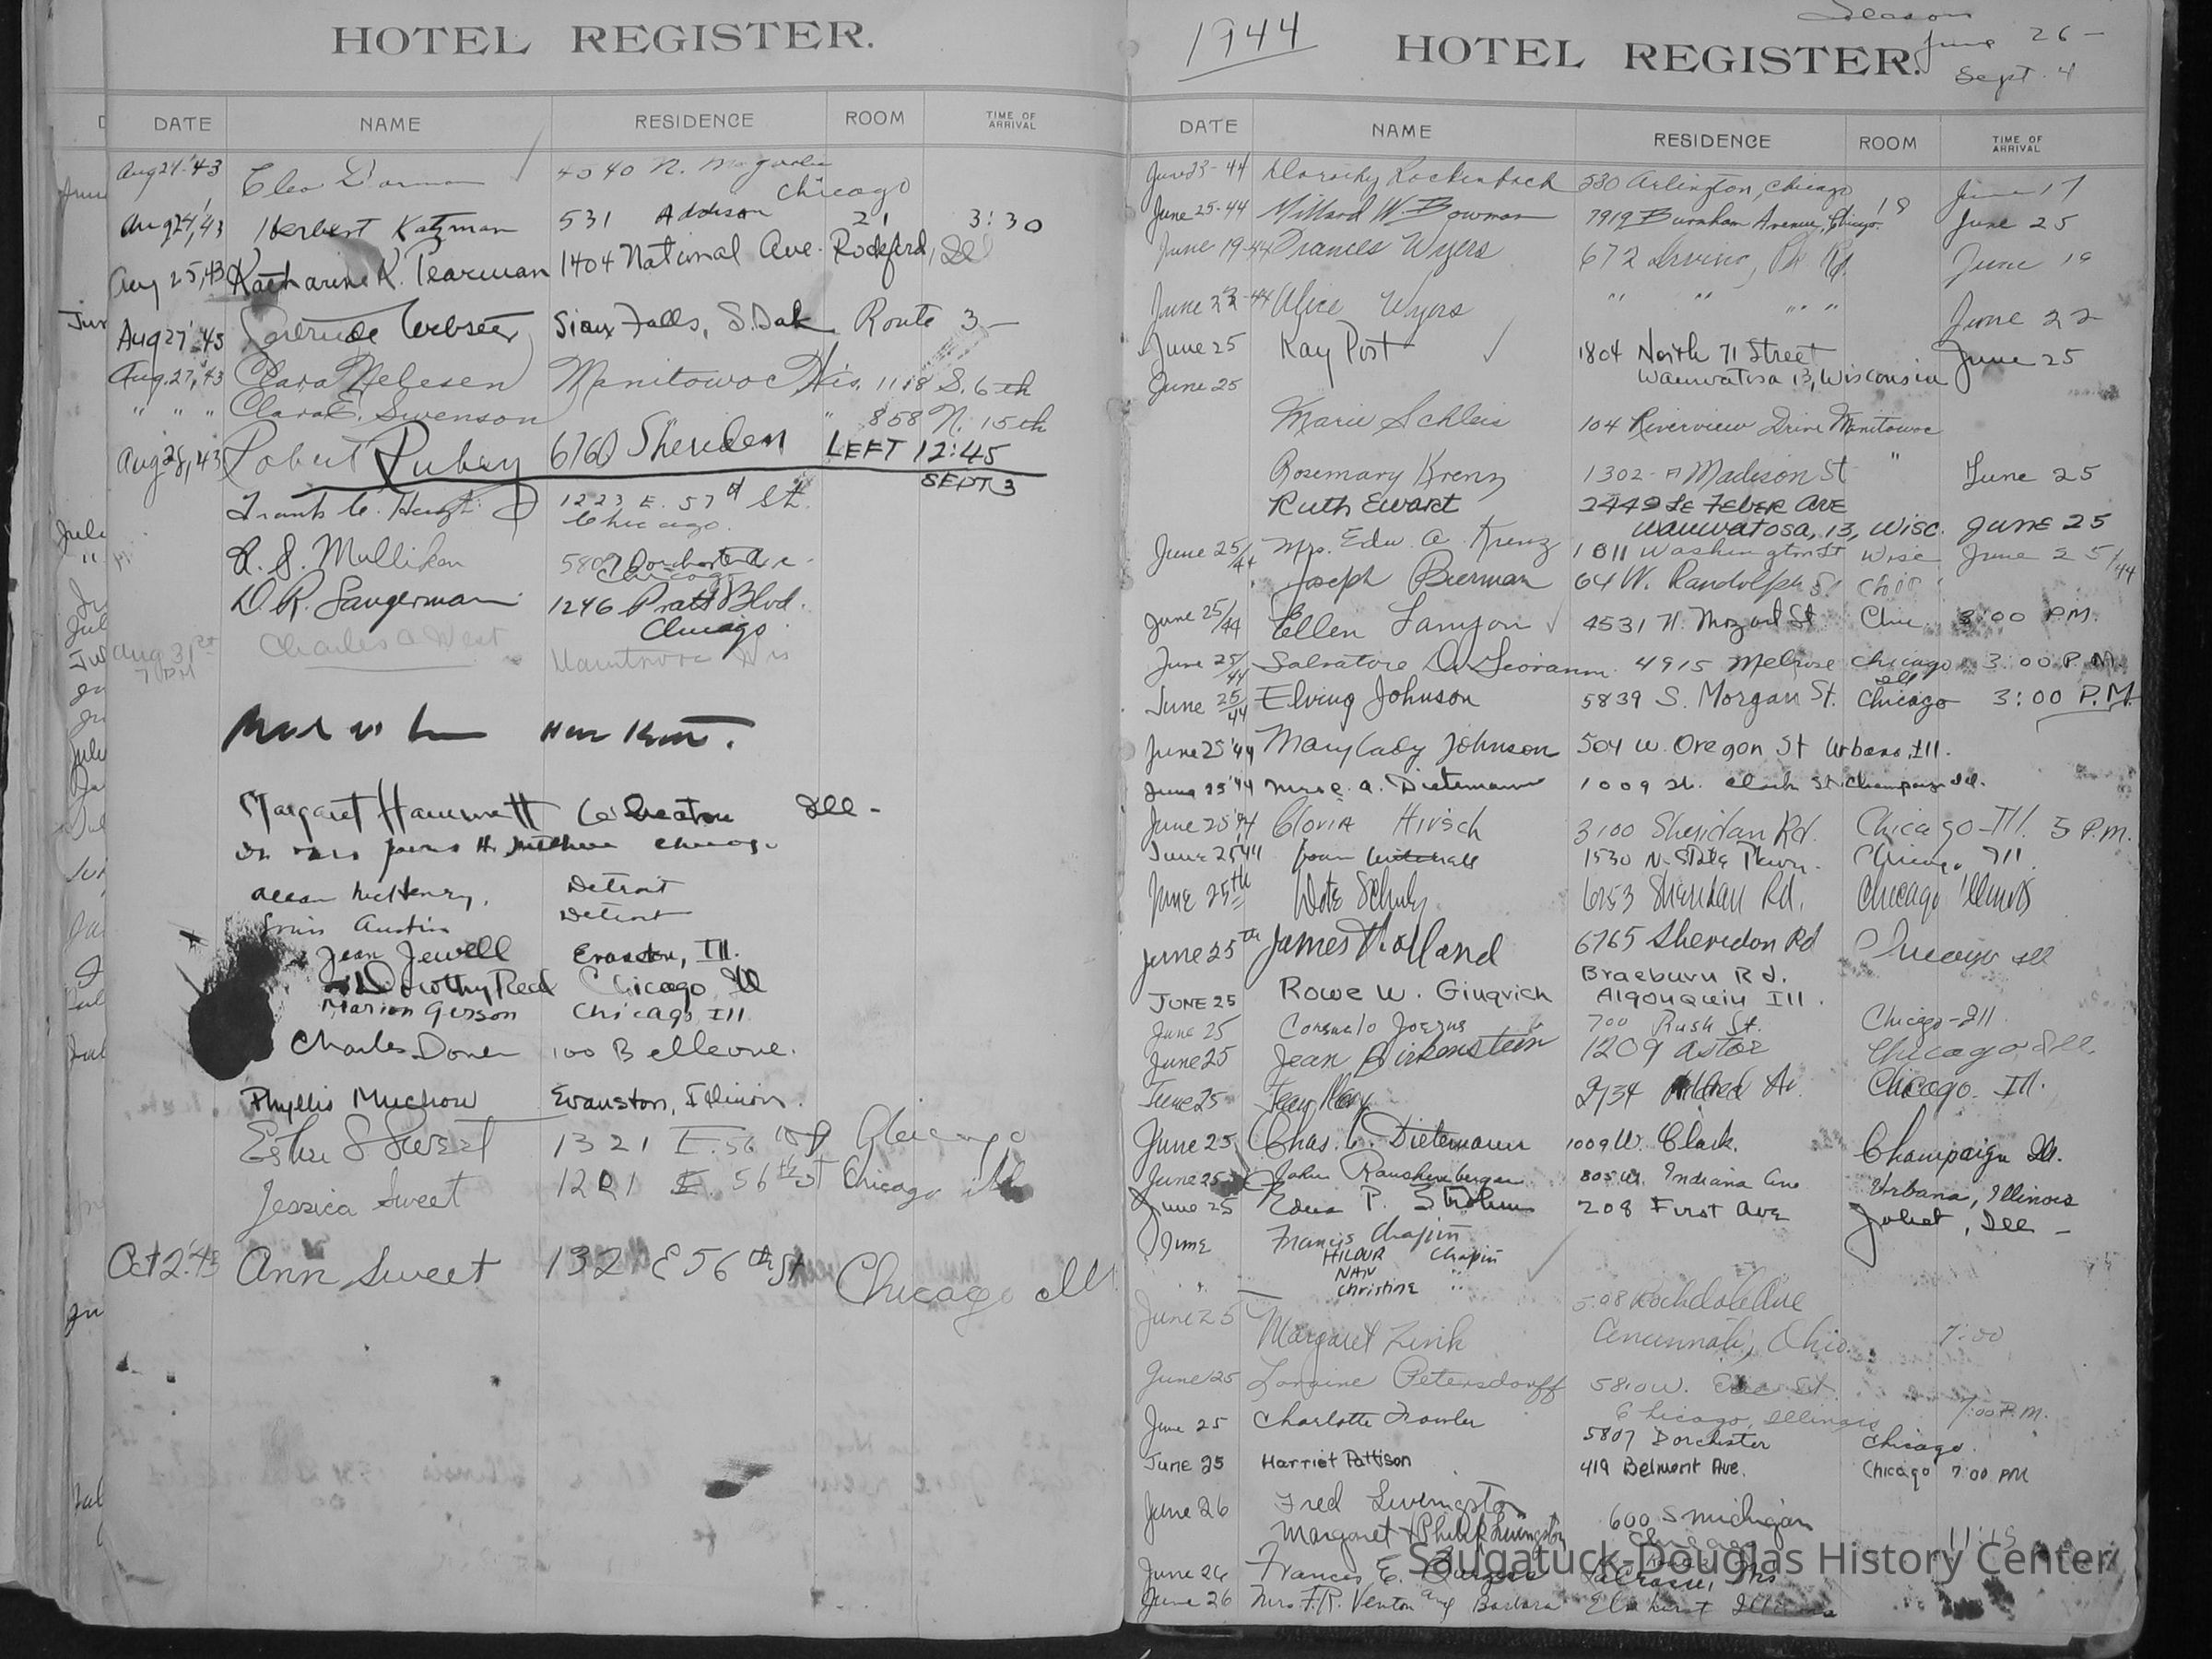 HOTEL REGISTER.
DATE NAME RESIDENCE ROOM TIME OF ARRIVAL
Aug 24 '43 Cleo Dorman 4040 N. Magnolia
Chicago
Aug 24, '43 Herbert Katzman 531 Addison 21 3:30
Aug 25, 43 Katharine K. Pearman 1404 National Ave. Rockford, Ill
Aug 27 '43 Gertrude Webster Sioux Falls, S. Dak Route 3
Aug. 27, '43 Clara Nelesen Manitowoc Wis. 1118 S. 6th
" " " Clara E. Swenson " 858 N. 15th
Aug 28, 43 Robert Pubey 6760 Sheriden LEFT 12:45
SEPT 3
1223 E. 57th St.
Chicago.
R. S. Mulliken 5807 Dorchester Ave.
Chicago
D. R. Saugerman 1246 Pratt Blvd.
Chicago
Aug 31st Charles A West Manitowoc Wis
7 PM
Margaret Hammett Wheaton Ill -
Allan McHenry, Detroit
Austin Detroit
Jean Jewell Evanston, Ill.
Dorothy Reed Chicago Ill
Marion Gerson Chicago, Ill
Charles Doner 100 Bellevue.
Phyllis Muchow Evanston, Illinois.
Esther S Sweet 1321 E. 56th St Chicago
Jessica Sweet 1221 E. 56th St Chicago Ill
Oct 2 '43 Ann Sweet 132 E 56th St Chicago Ill
1944
Season
June 26 -
Sept. 4
HOTEL REGISTER.
DATE NAME RESIDENCE ROOM TIME OF ARRIVAL
June 23-44 Dorothy Rockenbach 530 Arlington, Chicago June 17
June 25-44 Millard W. Bowman 7919 Burnham Avenue, Chicago. 18 June 25
June 19-44 Frances Wyers 672 Irving Pk Rd. June 19
June 22-44 Alice Wyers " " " " June 22
June 25 Kay Post 1804 North 71 Street June 25
Wauwatosa 13, Wisconsin
June 25
Marie Schleis 104 Riverview Drive Manitowoc
Rosemary Krenz 1302-A Madison St " June 25
Ruth Ewart 2449 LE FEBER AVE
Wauwatosa, 13, Wisc. June 25
June 25/44 Mrs. Edw. A. Krenz 1811 Washington St Wisc June 25/44
Joseph Bierman 64 W. Randolph St Chic
June 25/44 Ellen Lanyon 4531 N. Mozart St Chic 3:00 PM.
June 25/44 Salvatore Di Giovanni 4915 Melrose Chicago Ill 3:00 P.M.
June 25/44 Elving Johnson 5839 S. Morgan St. Chicago 3:00 P.M.
June 25 '44 Mary Cady Johnson 504 W. Oregon St Urbana, Ill.
June 25 '44 Mrs C. A. Dietemann 1009 W. Clark St Champaign Ill.
June 25 '44 Gloria Hirsch 3100 Sheridan Rd. Chicago-Ill. 5 P.M.
June 25 '44 1530 N. State Pkwy. Chicago Ill.
June 25th 6153 Sheridan Rd. Chicago Illinois
June 25th James Holland 6765 Sheridon Rd Chicago Ill
JUNE 25 Rowe W. Gingrich Braeburn Rd.
Algonquin Ill.
June 25 Consuelo Joerns 700 Rush St. Chicago-Ill.
June 25 Jean Birkenstein 1209 Astor Chicago, Ill.
June 25 2734 Mildred Av. Chicago. Ill.
June 25 Chas. C. Dietemann 1009 W. Clark. Champaign Ill.
June 25 John Raushenberger 805 W. Indiana Ave Urbana, Illinois
June 25 Edna P. Strohm 208 First Ave Joliet, Ill -
June Francis Chapin
HILDUR Chapin
" NAN "
Christine "
June 25 508 Rockdale Ave
Margaret Zink Cincinnati, Ohio. 7:00
June 25 Loraine Petersdorff 5810 W. Erie St.
Chicago, Illinois 7:00 P.M.
June 25 Charlotte Fowler 5807 Dorchester Chicago.
June 25 Harriet Pattison 419 Belmont Ave. Chicago 7:00 PM
June 26 Fred Livingston 600 S Michigan
Margaret + Philip Livingston Chicago 11:15
June 26 Frances E. Burgess LaCrosse, Wis
June 26 Mrs F. R. Venton and Barbara Elmhurst Illinois
Saugatuck-Douglas History Center